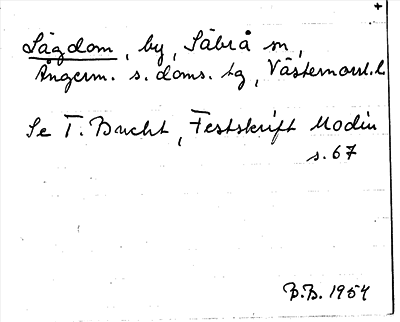 +
Lägdom, by, Säbrå sn,
Ångerm. s. doms. tg, Västernorrl. l.
Se T. Bucht, Festskrift Modin
s. 67
B.B. 1954